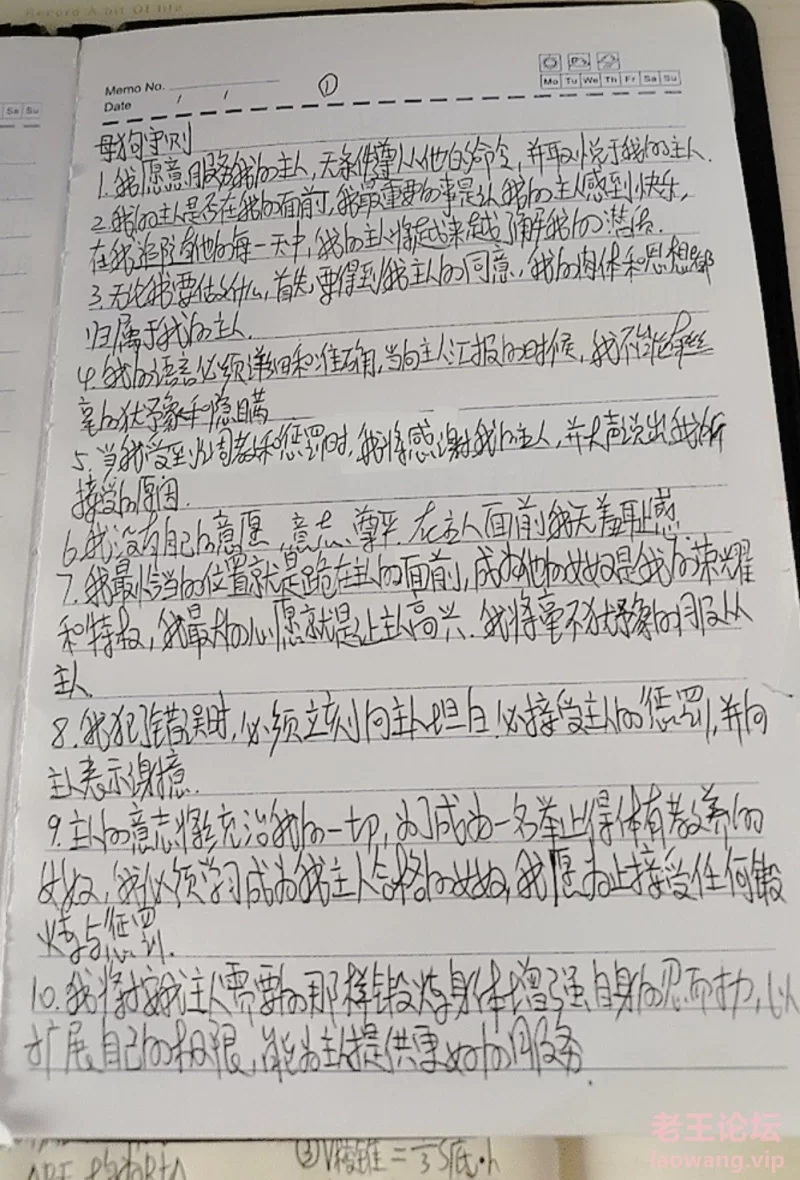 Record A bit Of life
Sa Su
Memo No.
①
Mo Tu We Th Fr Sa Su
Date / /
母狗守则
1.我愿意服务我的主人,无条件尊从他的命令,并取悦于我的主人.
2.我的主人是否在我的面前,我最重要的事是让我的主人感到快乐,
在我追随他的每一天中,我的主人将越来越了解我的潜活.
3.无论我要做什么,首先要得到我主人的同意,我的肉体和思想都
归属于我的主人.
4.我的语言必须详细和准确,当向主人汇报的时候,我不能有丝
毫的犹予象和隐瞒
5.当我受到调教和惩罚时,我将感谢我的主人,并大声说出我所
接受的原因.
6.我没有自己的意愿、意志、尊严.在主人面前我无羞耻感
7.我最恰当的位置就是跪在主人的面前,成为他的女奴是我的荣耀
和特权,我最大的心愿就是让主人高兴.我将毫不犹予象的服从
主人.
8.我犯了错误时,必须立刻向主人坦白.必接受主人的惩罚,并向
主人表示谢意.
9.主人的意志将统治我的一切,为了成为一名举止得体有教养的
女奴,我必须学习成为我主人合格的女奴,我愿为此接受任何锻
炼与惩罚.
10.我将按我主人需要的那样锻炼身体增强自身的忍耐力,以
扩展自己的极限,能为主人提供更好的服务.
③V棱锥=1/3S底·h
老王论坛
laowang.vip